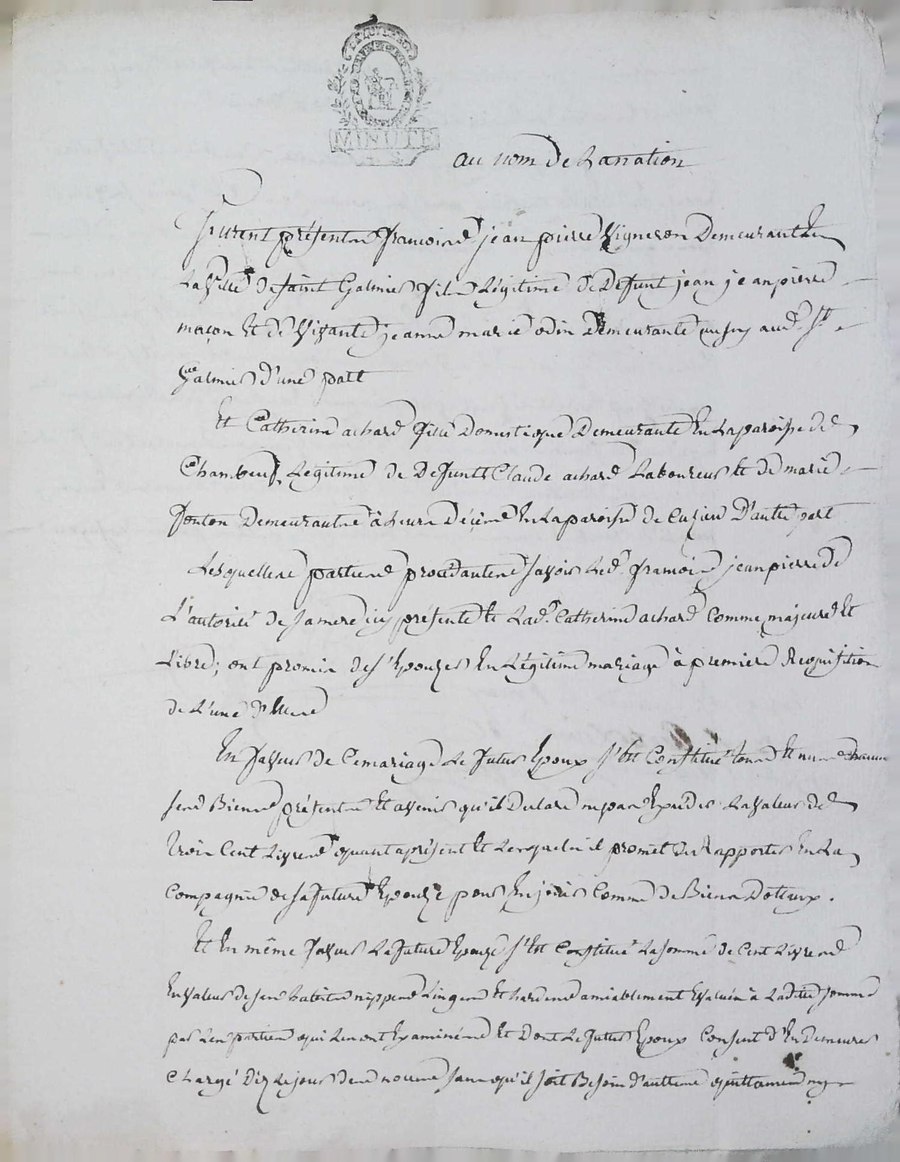 MINUTE
au nom de La nation
furent présents francois jean pierre Vigneron Demeurant En
La Ville de Saint Galmier fils Légitime de Defunt jean jeanpierre
maçon Et de Vivante jeanne marie odin Demeurante aussy aud. St
Galmier d'une part
Et Catherine achard fille Domestique Demeurante En La paroisse de
Chambeuf, Legitime de Defunt Claude achard Laboureur Et de marie
fonton Demeurants à Leurs Décès En La paroisse de Cuzieu D'autre part
Lesquelles parties procédantes savoir Led. francois jeanpierre de
L'autorité de sa mere icy présente Et Lad. Catherine achard Comme majeure Et
Libre; ont promis de s'Epouzer En Légitime mariage à premiere Requisition
de L'une d'elles
En faveur de Ce mariage Le futur Epoux s'est Constitué tous Et uns chacuns
ses Biens présents Et avenir qu'il Déclare Exéder La valeur de
trois Cent Livres quant aprésent Et Lesquels il promet de Rapporter En La
Compagnie de sa future Epouze pour En jouir Comme de Biens Dotaux.
Et En même faveur La future Epouze s'est Constitué La somme de Cent Livres
En valeur de ses habits nippes Linges Et hardes amiablement Evalués à Ladite somme
par Les parties qui Les ont Examinés Et Dont Le futur Epoux Consent d'En Demeurer
Chargé Dez Le jour des noces sans qu'il soit Besoin d'autres quittances ny